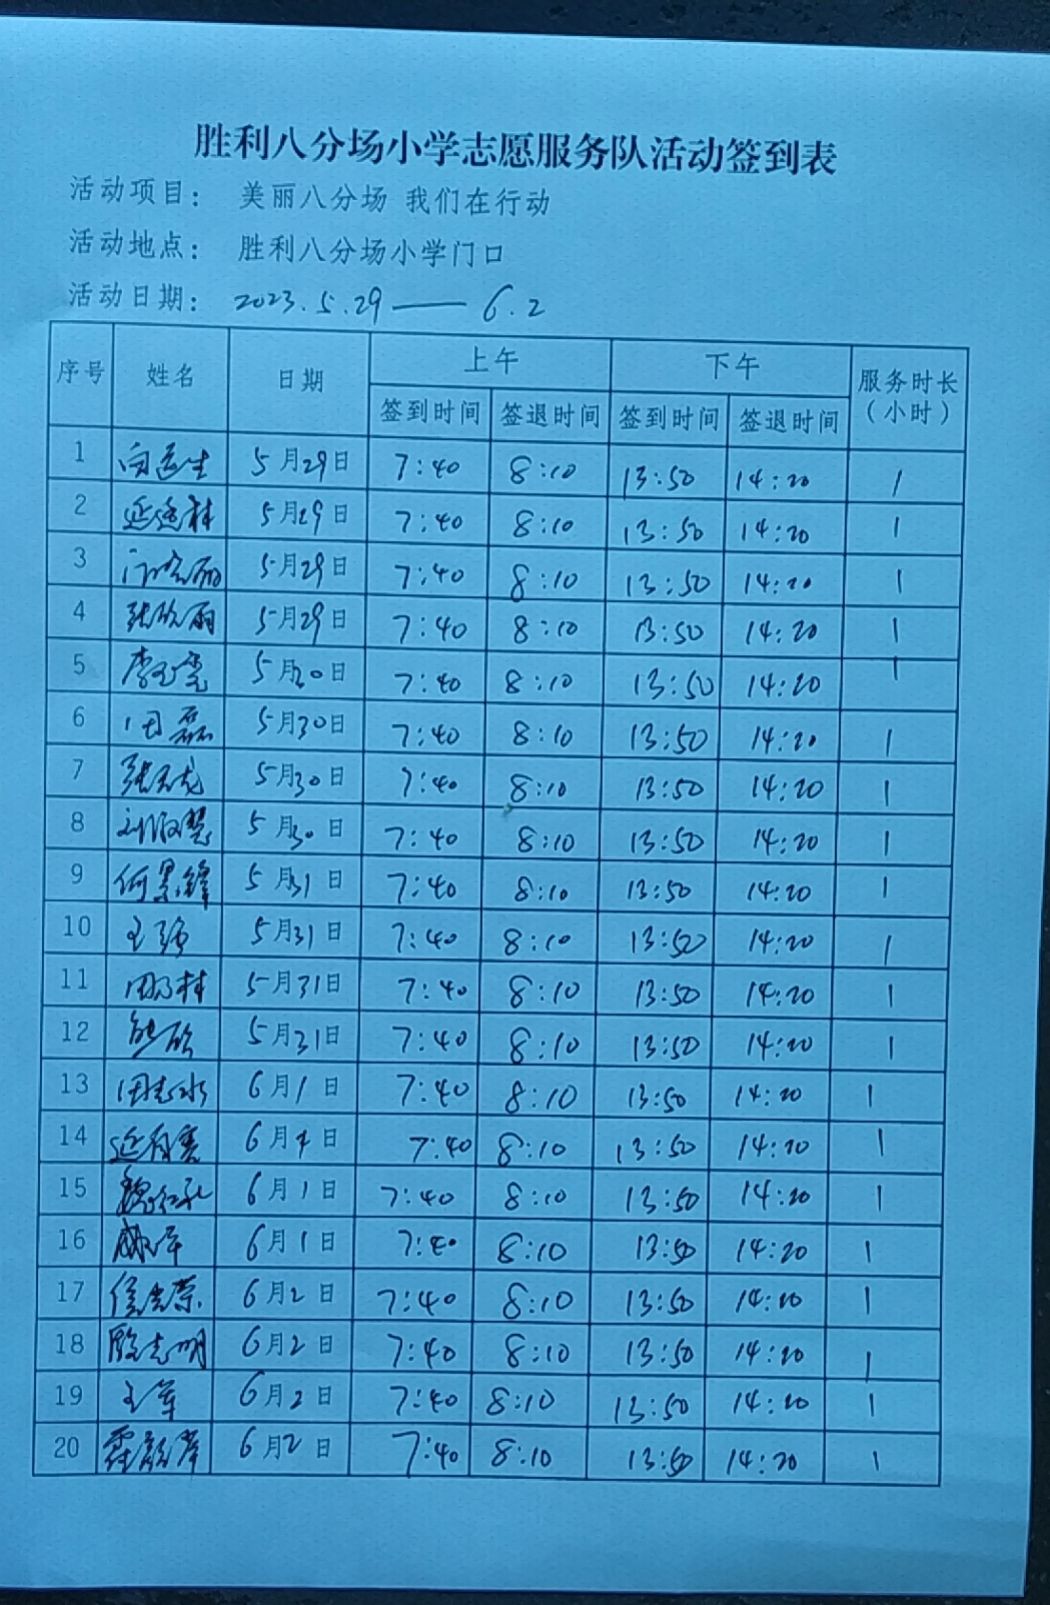 胜利八分场小学志愿服务队活动签到表
活动项目： 美丽八分场 我们在行动
活动地点： 胜利八分场小学门口
活动日期： 2023.5.29 —— 6.2
序号 姓名 日期 上午 下午 服务时长（小时）
签到时间 签退时间 签到时间 签退时间
1 5月29日 7:40 8:10 13:50 14:20 1
2 5月29日 7:40 8:10 13:50 14:20 1
3 5月29日 7:40 8:10 13:50 14:20 1
4 张欣丽 5月29日 7:40 8:10 13:50 14:20 1
5 5月30日 7:40 8:10 13:50 14:20 1
6 田磊 5月30日 7:40 8:10 13:50 14:20 1
7 张玉龙 5月30日 7:40 8:10 13:50 14:20 1
8 刘淑慧 5月30日 7:40 8:10 13:50 14:20 1
9 何景锋 5月31日 7:40 8:10 13:50 14:20 1
10 王强 5月31日 7:40 8:10 13:50 14:20 1
11 5月31日 7:40 8:10 13:50 14:20 1
12 熊欣 5月31日 7:40 8:10 13:50 14:20 1
13 田志冰 6月1日 7:40 8:10 13:50 14:20 1
14 6月1日 7:40 8:10 13:50 14:20 1
15 魏红孔 6月1日 7:40 8:10 13:50 14:20 1
16 6月1日 7:40 8:10 13:50 14:20 1
17 6月2日 7:40 8:10 13:50 14:20 1
18 殷志明 6月2日 7:40 8:10 13:50 14:20 1
19 王军 6月2日 7:40 8:10 13:50 14:20 1
20 6月2日 7:40 8:10 13:50 14:20 1